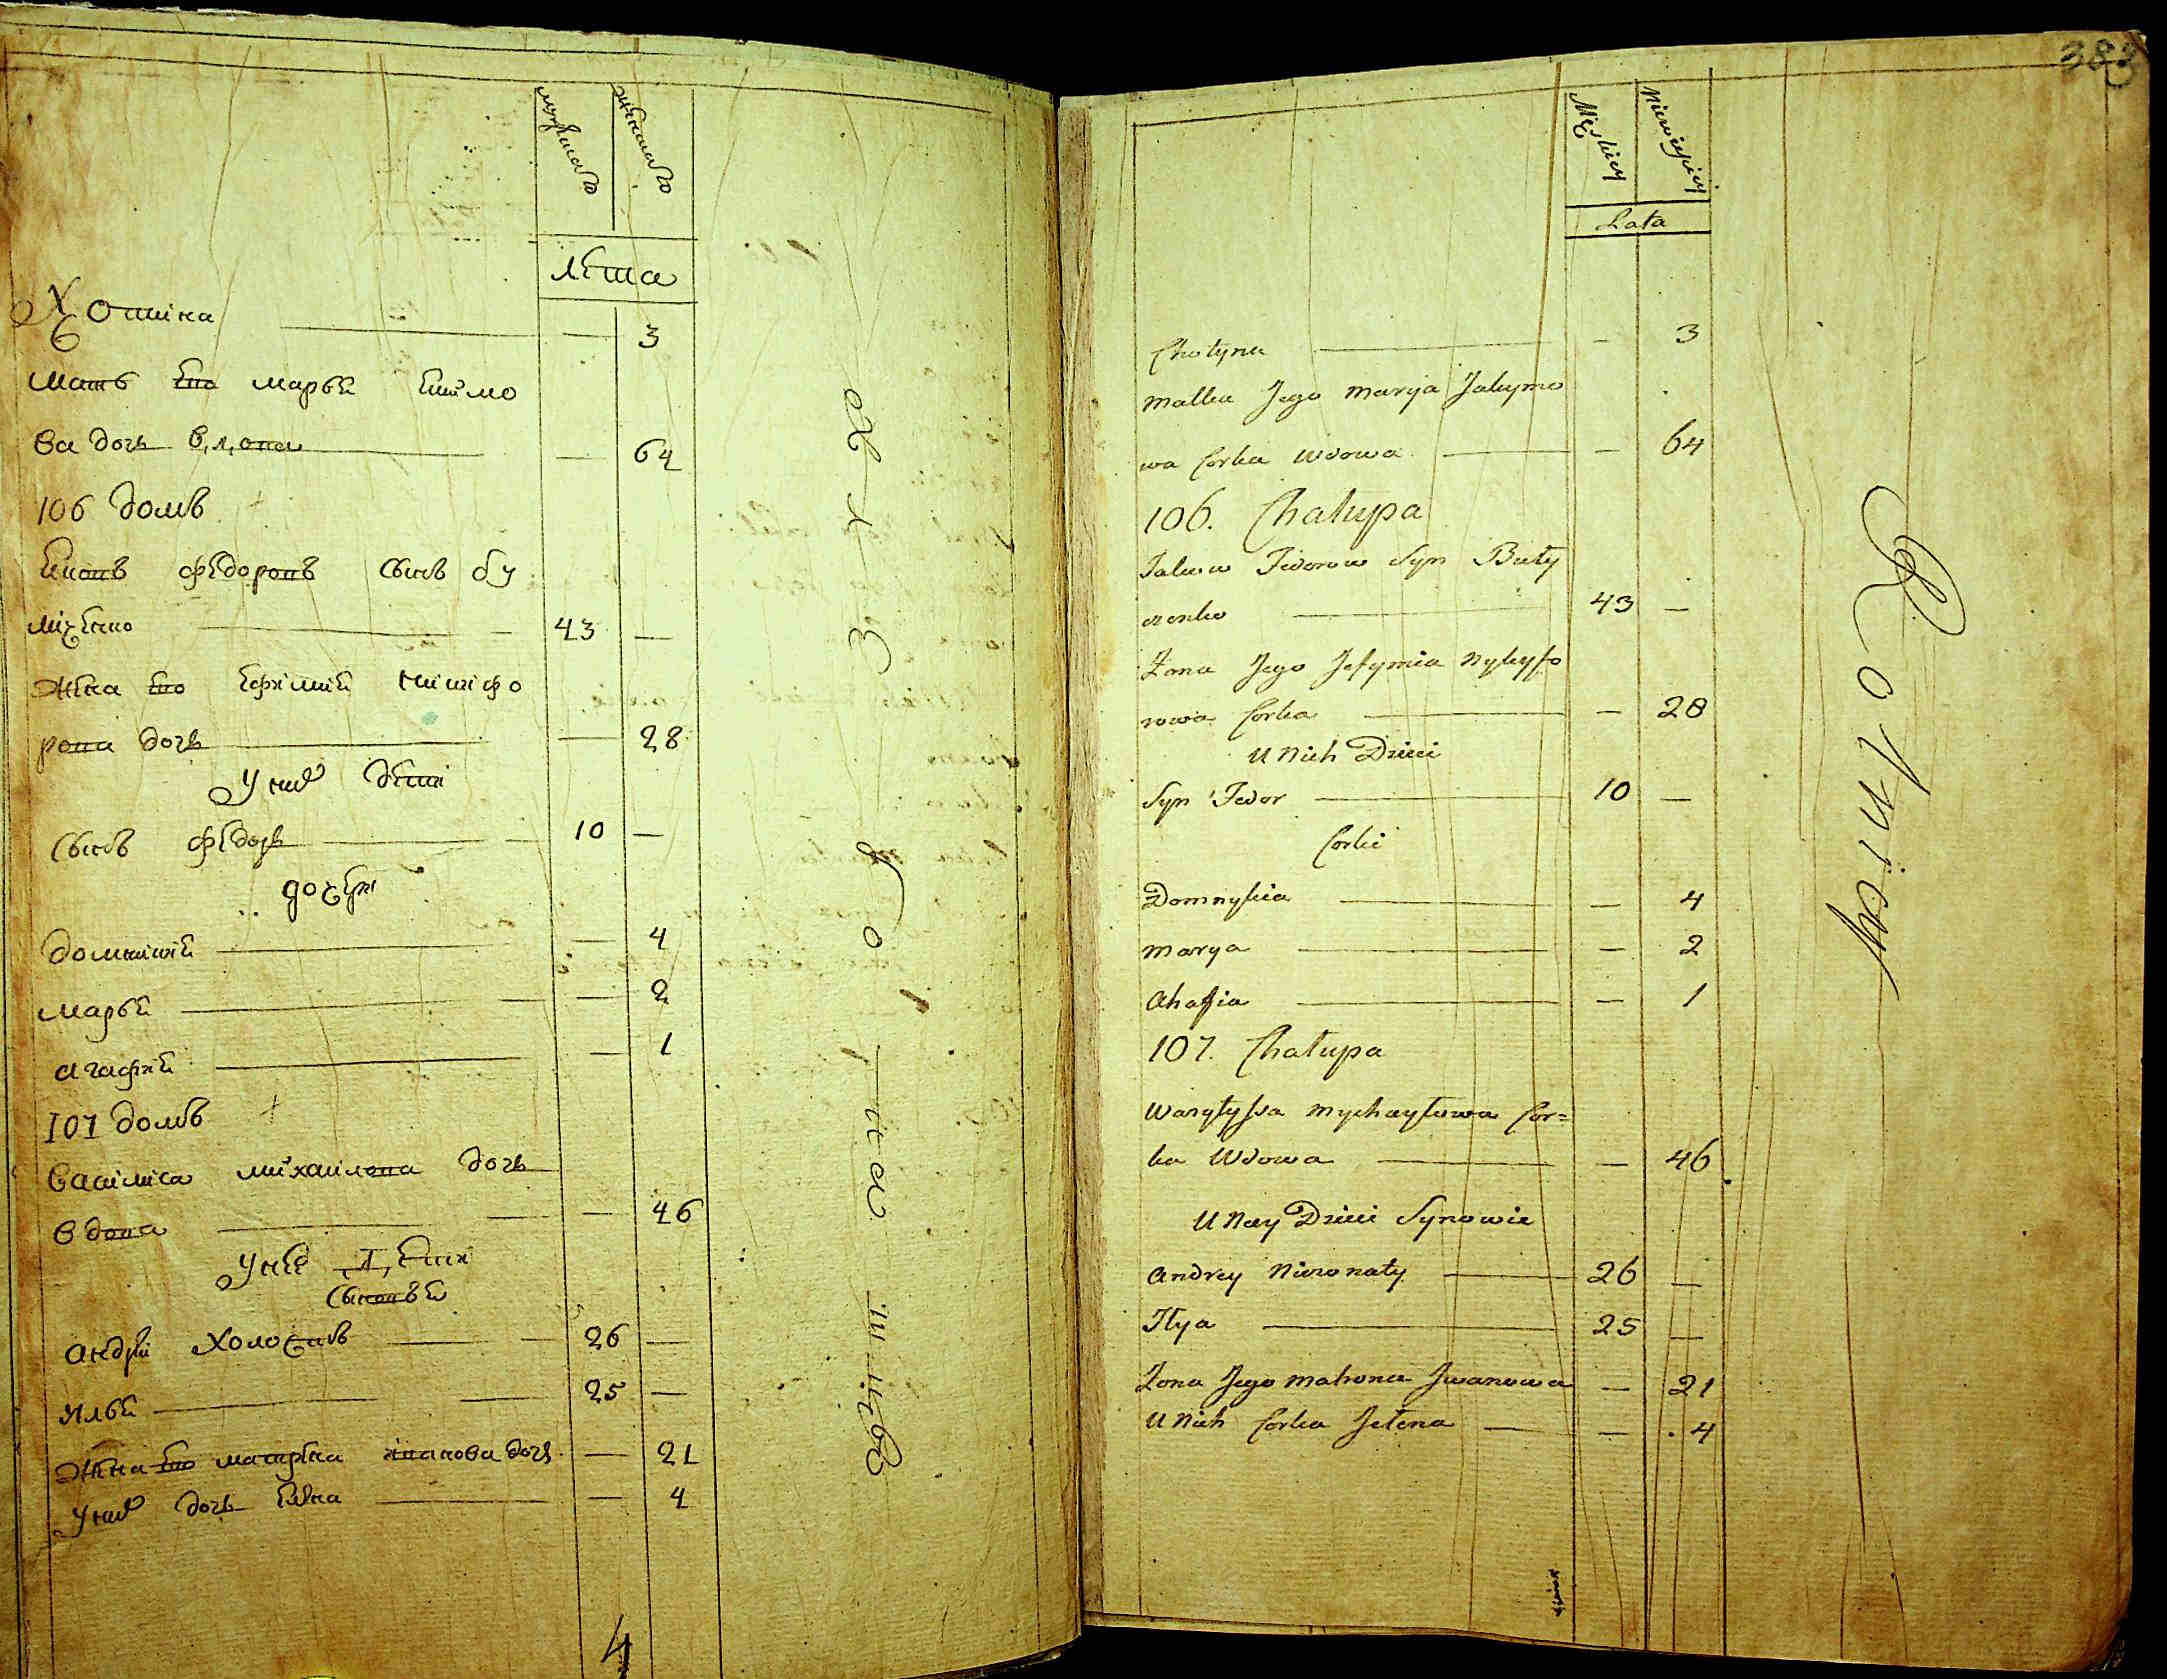 мужескаго
женскаго
лета
Хотина — 3
Мать его марья Екимо
ва дочь вдова — 64
106 домъ
Екопъ федоровъ сынъ бу
43 —
жена его ефимия никифо
рова дочь — 28
У них дети
сынъ федоръ 10 —
дочери
домникия — 4
марья — 2
агафия — 1
107 домъ
василиса михаилова дочь
вдова — 46
У нее дети
сыновья
андрей холостъ 26 —
илья 25 —
жена его матрена иванова дочь — 21
У них дочь елена — 4
4
383
Męskiey
Niewieściey
Lata
Chotyna — 3
Matka Jego Marija Jakymo
wa Corka Wdowa — 64
106. Chałupa
Jakuw Fedorow Syn Buty
czenko 43 —
Żona Jego Jefymia Nykyfo
rowa Corka — 28
U Nich Dzieci
Syn Fedor 10 —
Corki
Domnykia — 4
Marya — 2
Ahafia — 1
107. Chałupa
Wasyłyssa Mychayłowa Cor=
ka Wdowa — 46
U Ney Dzieci Synowie
Andrey Niezonaty 26 —
Ilya 25 —
Żona Jego Matrona Iwanowa — 21
U Nich Corka Jełena — 4